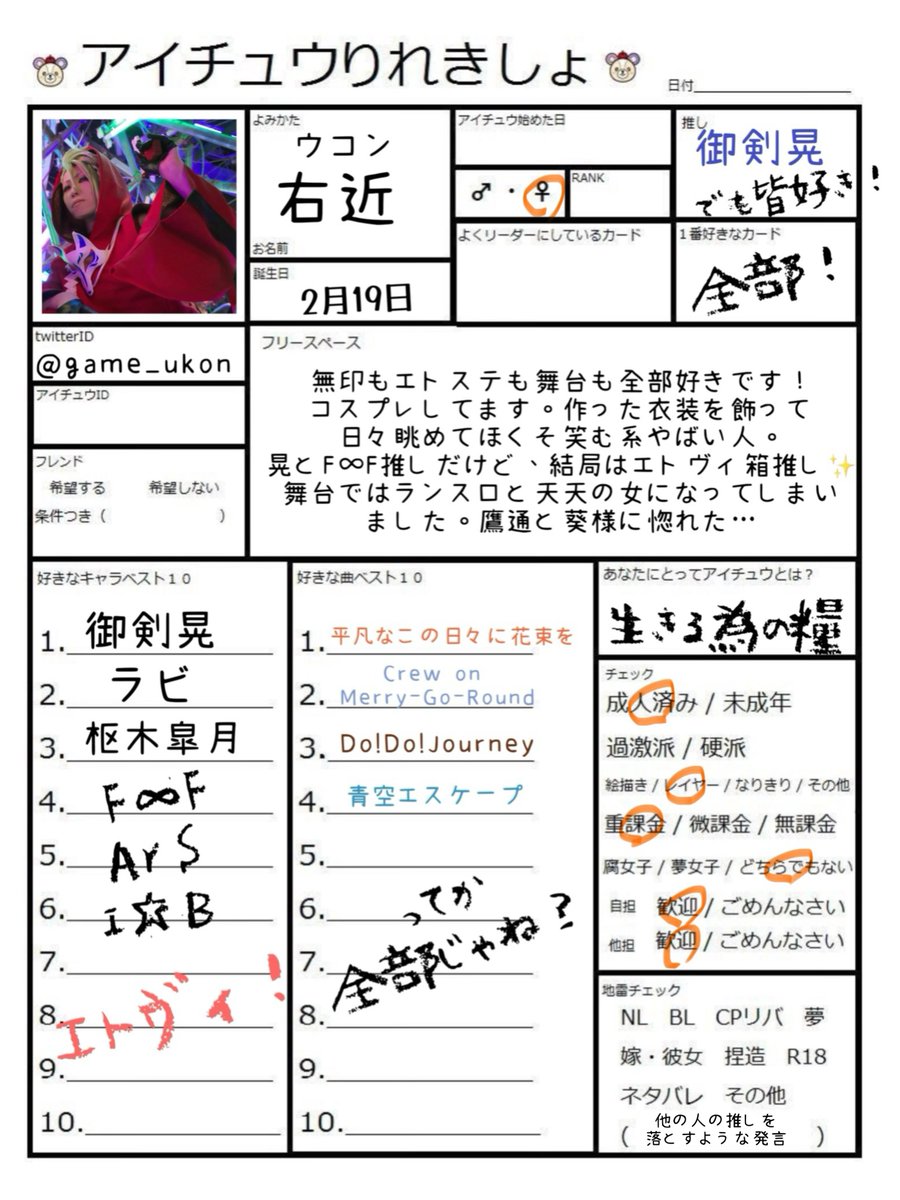 アイチュウりれきしょ
日付
よみかた
ウコン
右近
お名前
誕生日
2月19日
アイチュウ始めた日
♂・♀
RANK
推し
御剣晃
でも皆好き!
よくリーダーにしているカード
1番好きなカード
全部!
twitterID
@game_ukon
アイチュウID
フレンド
希望する 希望しない
条件つき( )
フリースペース
無印もエトステも舞台も全部好きです!
コスプレしてます。作った衣装を飾って
日々眺めてほくそ笑む系やばい人。
晃とF∞F推しだけど、結局はエトヴィ箱推し✨
舞台ではランスロと天天の女になってしまい
ました。鷹通と葵様に惚れた…
好きなキャラベスト10
1. 御剣晃
2. ラビ
3. 枢木皐月
4. F∞F
5. ArS
6. i☆B
7.
8.
エトヴィ!
9.
10.
好きな曲ベスト10
1. 平凡なこの日々に花束を
2. Crew on
Merry-Go-Round
3. Do!Do!Journey
4. 青空エスケープ
5.
6.
ってか
7.
全部じゃね?
8.
9.
10.
あなたにとってアイチュウとは?
生きる為の糧
チェック
成人済み / 未成年
過激派 / 硬派
絵描き / レイヤー / なりきり / その他
重課金 / 微課金 / 無課金
腐女子 / 夢女子 / どちらでもない
自担 歓迎 / ごめんなさい
他担 歓迎 / ごめんなさい
地雷チェック
NL BL CPリバ 夢
嫁・彼女 捏造 R18
ネタバレ その他
( 他の人の推しを
落とすような発言 )